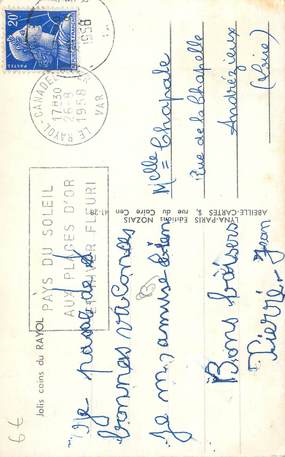 20
POSTES
LE RAYOL-CANADEL S/MER
17H30
26-8
1958
VAR
1958
PAYS DU SOLEIL
AUX PLAGES D'OR
ET HIVER FLEURI
Jolis coins du RAYOL
Je passe de
bonnes vacances
Je m'amuse bien
Bons baisers
Pierre-Jean
ABEILLE-CARTES
LYNA-PARIS
Éditions NOZAIS
5, rue du Caire Cen 41-28
Melle Chapale
Rue de la Chapelle
Andrézieux
(Loire)
6€